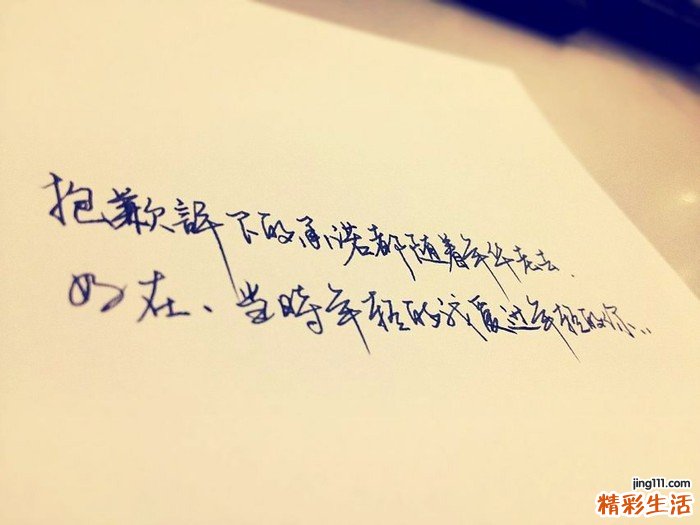 抱歉許下的承诺都随着年华老去.
好在、当時年轻的我爱过年轻的你...
jing111.com
精彩生活